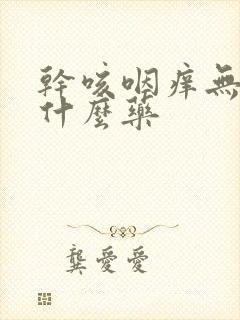 幹咳咽痒無
什麼藥
龔愛愛